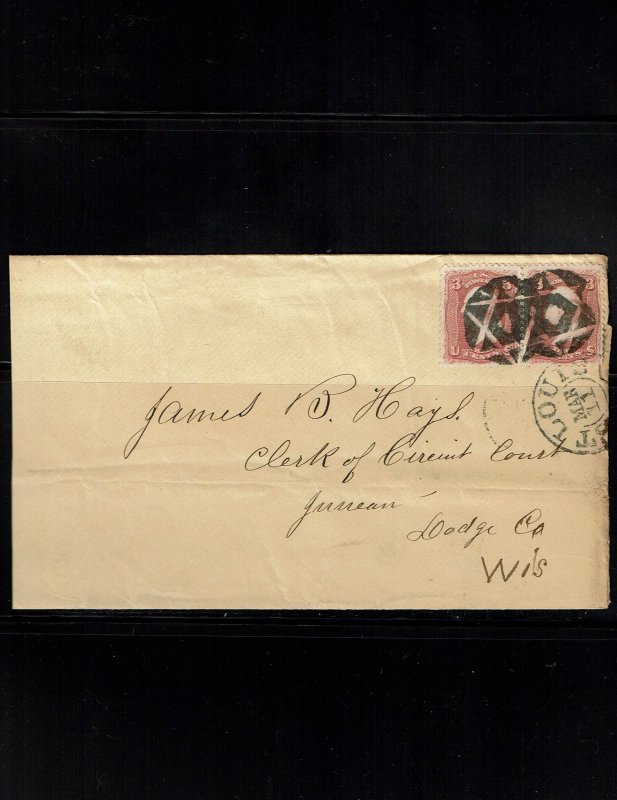 3 3
U S
LOUI
MAR
11
James B. Hays.
Clerk of Circuit Court
Juneau
Dodge Co
Wis